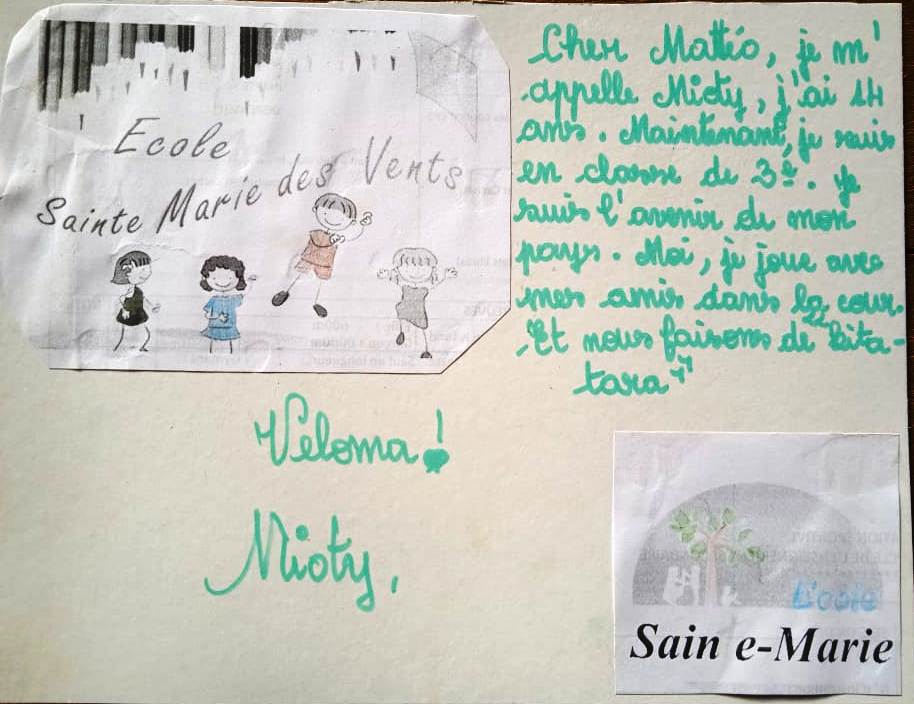 Ecole
Sainte Marie des Vents
Cher Mattéo, je m'
appelle Mioty, j'ai 14
ans. Maintenant, je suis
en classe de 3è. Je
suis l'avenir de mon
pays. Moi, je joue avec
mes amis dans la cour.
Et nous faisons de "kita-
tara"
Veloma!
Mioty,
L'ecole
Sain e-Marie